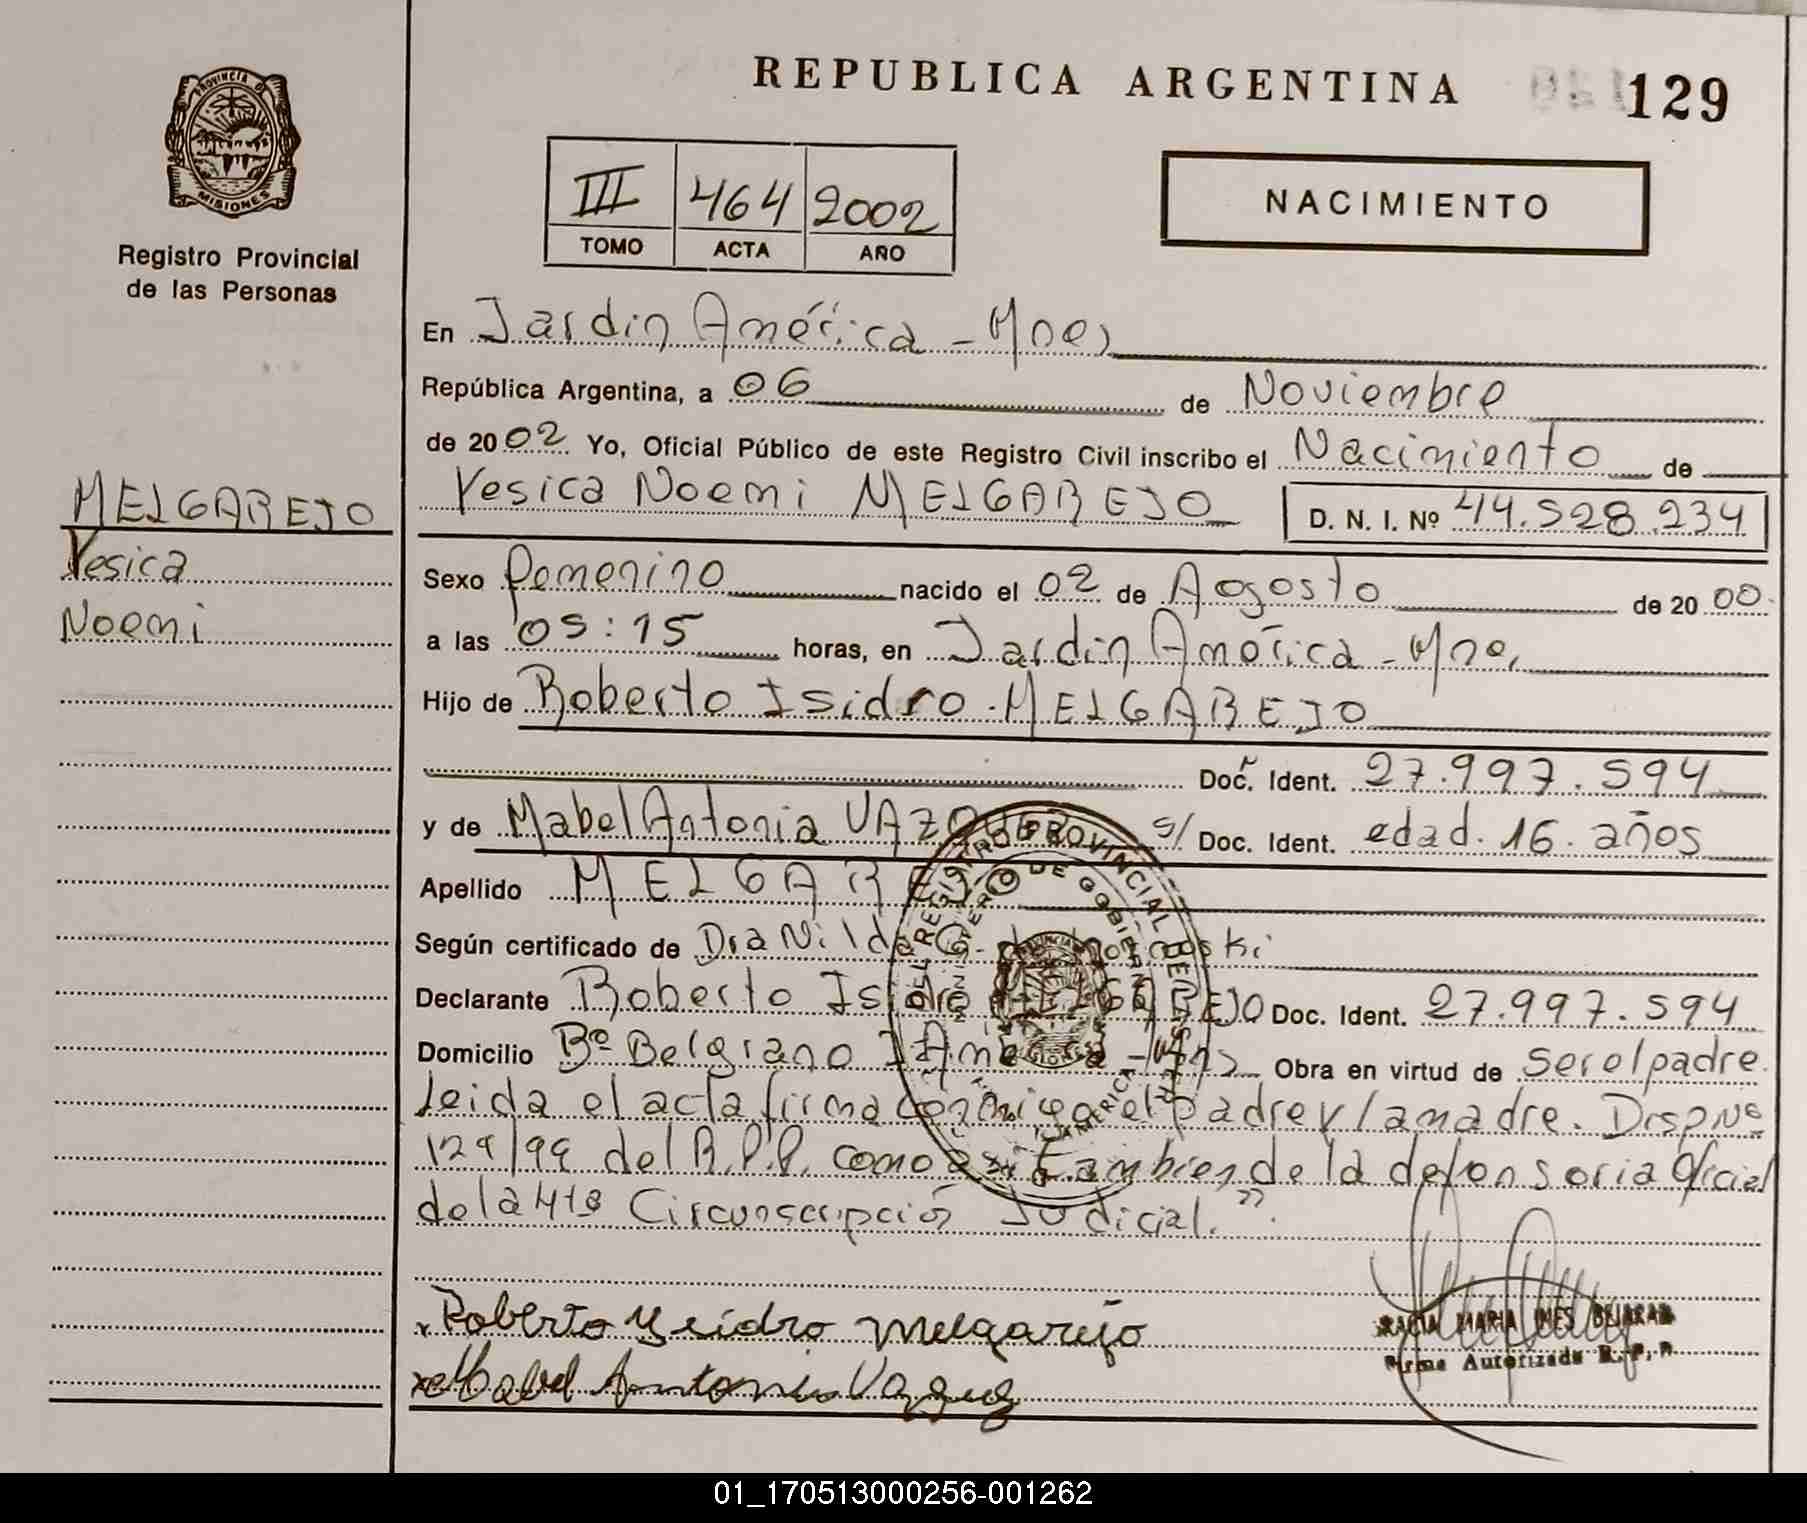 REPUBLICA ARGENTINA 129
PROVINCIA DE
MISIONES
Registro Provincial
de las Personas
III 464 2002
TOMO ACTA AÑO
NACIMIENTO
En Jardin América - Mnes
República Argentina, a 06 de Noviembre
de 2002 Yo, Oficial Público de este Registro Civil inscribo el Nacimiento de
Yesica Noemi MELGAREJO D. N. I. Nº 44.528.234
MELGAREJO
Yesica
Noemi
Sexo femenino nacido el 02 de Agosto de 2000
a las 05:15 horas, en Jardin América - Mnes
Hijo de Roberto Isidro MELGAREJO
Doc. Ident. 27.997.594
y de Mabel Antonia VAZQUEZ s/ Doc. Ident. edad. 16. años
Apellido MELGAREJO
Según certificado de Dra Nilda
Declarante Roberto Isidro MELGAREJO Doc. Ident. 27.997.594
Domicilio Bº Belgrano J América - Mns Obra en virtud de ser el padre
Leida el acta firma conmigo el padre y la madre. Disp Nº
129/99 del R.P.P. como asi tambien de la defensoria oficial
de la 4ta Circunscripción Judicial.".
DEL REGISTRO PROVINCIAL DE LAS
MINISTERIO DE GOBIERNO
Roberto Ysidro Melgarejo
Mabel Antonia Vazquez
MARIA INES BEJARAN
Firma Autorizada R. P. P.
01_170513000256-001262